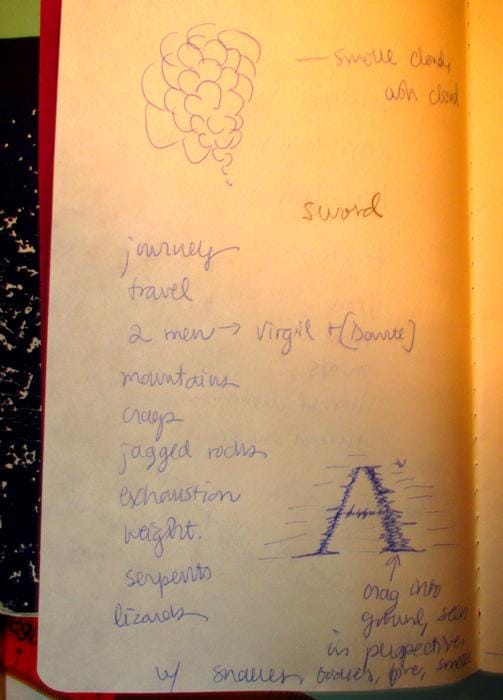 — smoke cloud,
ash cloud.
sword
journey
travel
2 men → Virgil + [Dante]
mountains
crags
jagged rocks
exhaustion
weight.
serpents
lizards
A
crag into
ground, seen
in perspective
w/ snakes, bodies, fire, smoke